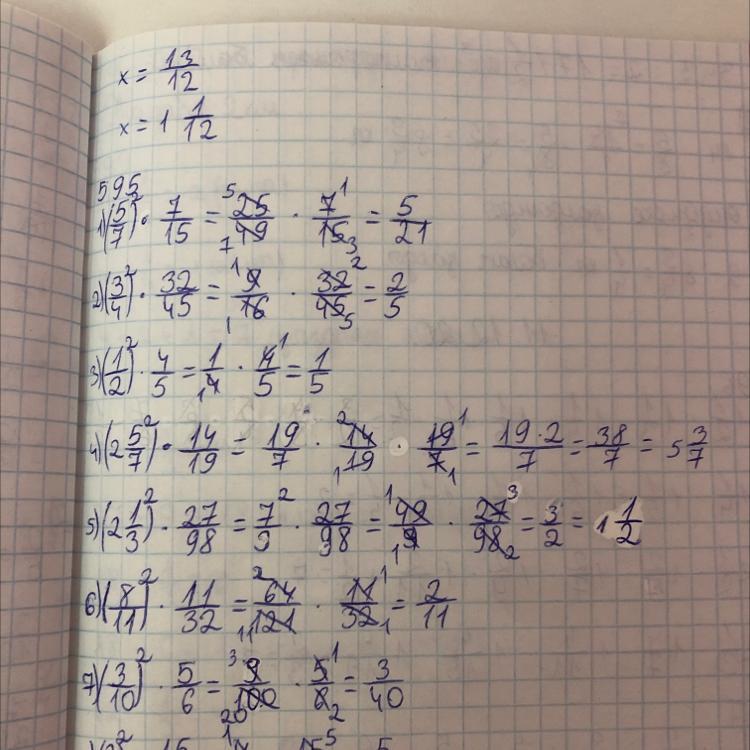 x = 13/12
x = 1 1/12
595
1) (5/7)² · 7/15 = 25/49 · 7/15 = 5/21
2) (3/4)² · 32/45 = 9/16 · 32/45 = 2/5
3) (1/2)² · 4/5 = 1/4 · 4/5 = 1/5
4) (2 5/7)² · 14/19 = 19/7 · 14/19 · 19/7 = 19·2/7 = 38/7 = 5 3/7
5) (2 1/3)² · 27/98 = 7/3² · 27/98 = 49/9 · 27/98 = 3/2 = 1 1/2
6) (8/11)² · 11/32 = 64/121 · 11/32 = 2/11
7) (3/10)² · 5/6 = 9/100 · 5/6 = 3/40